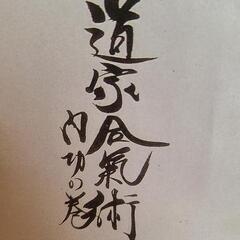 道家合氣術
内功の巻